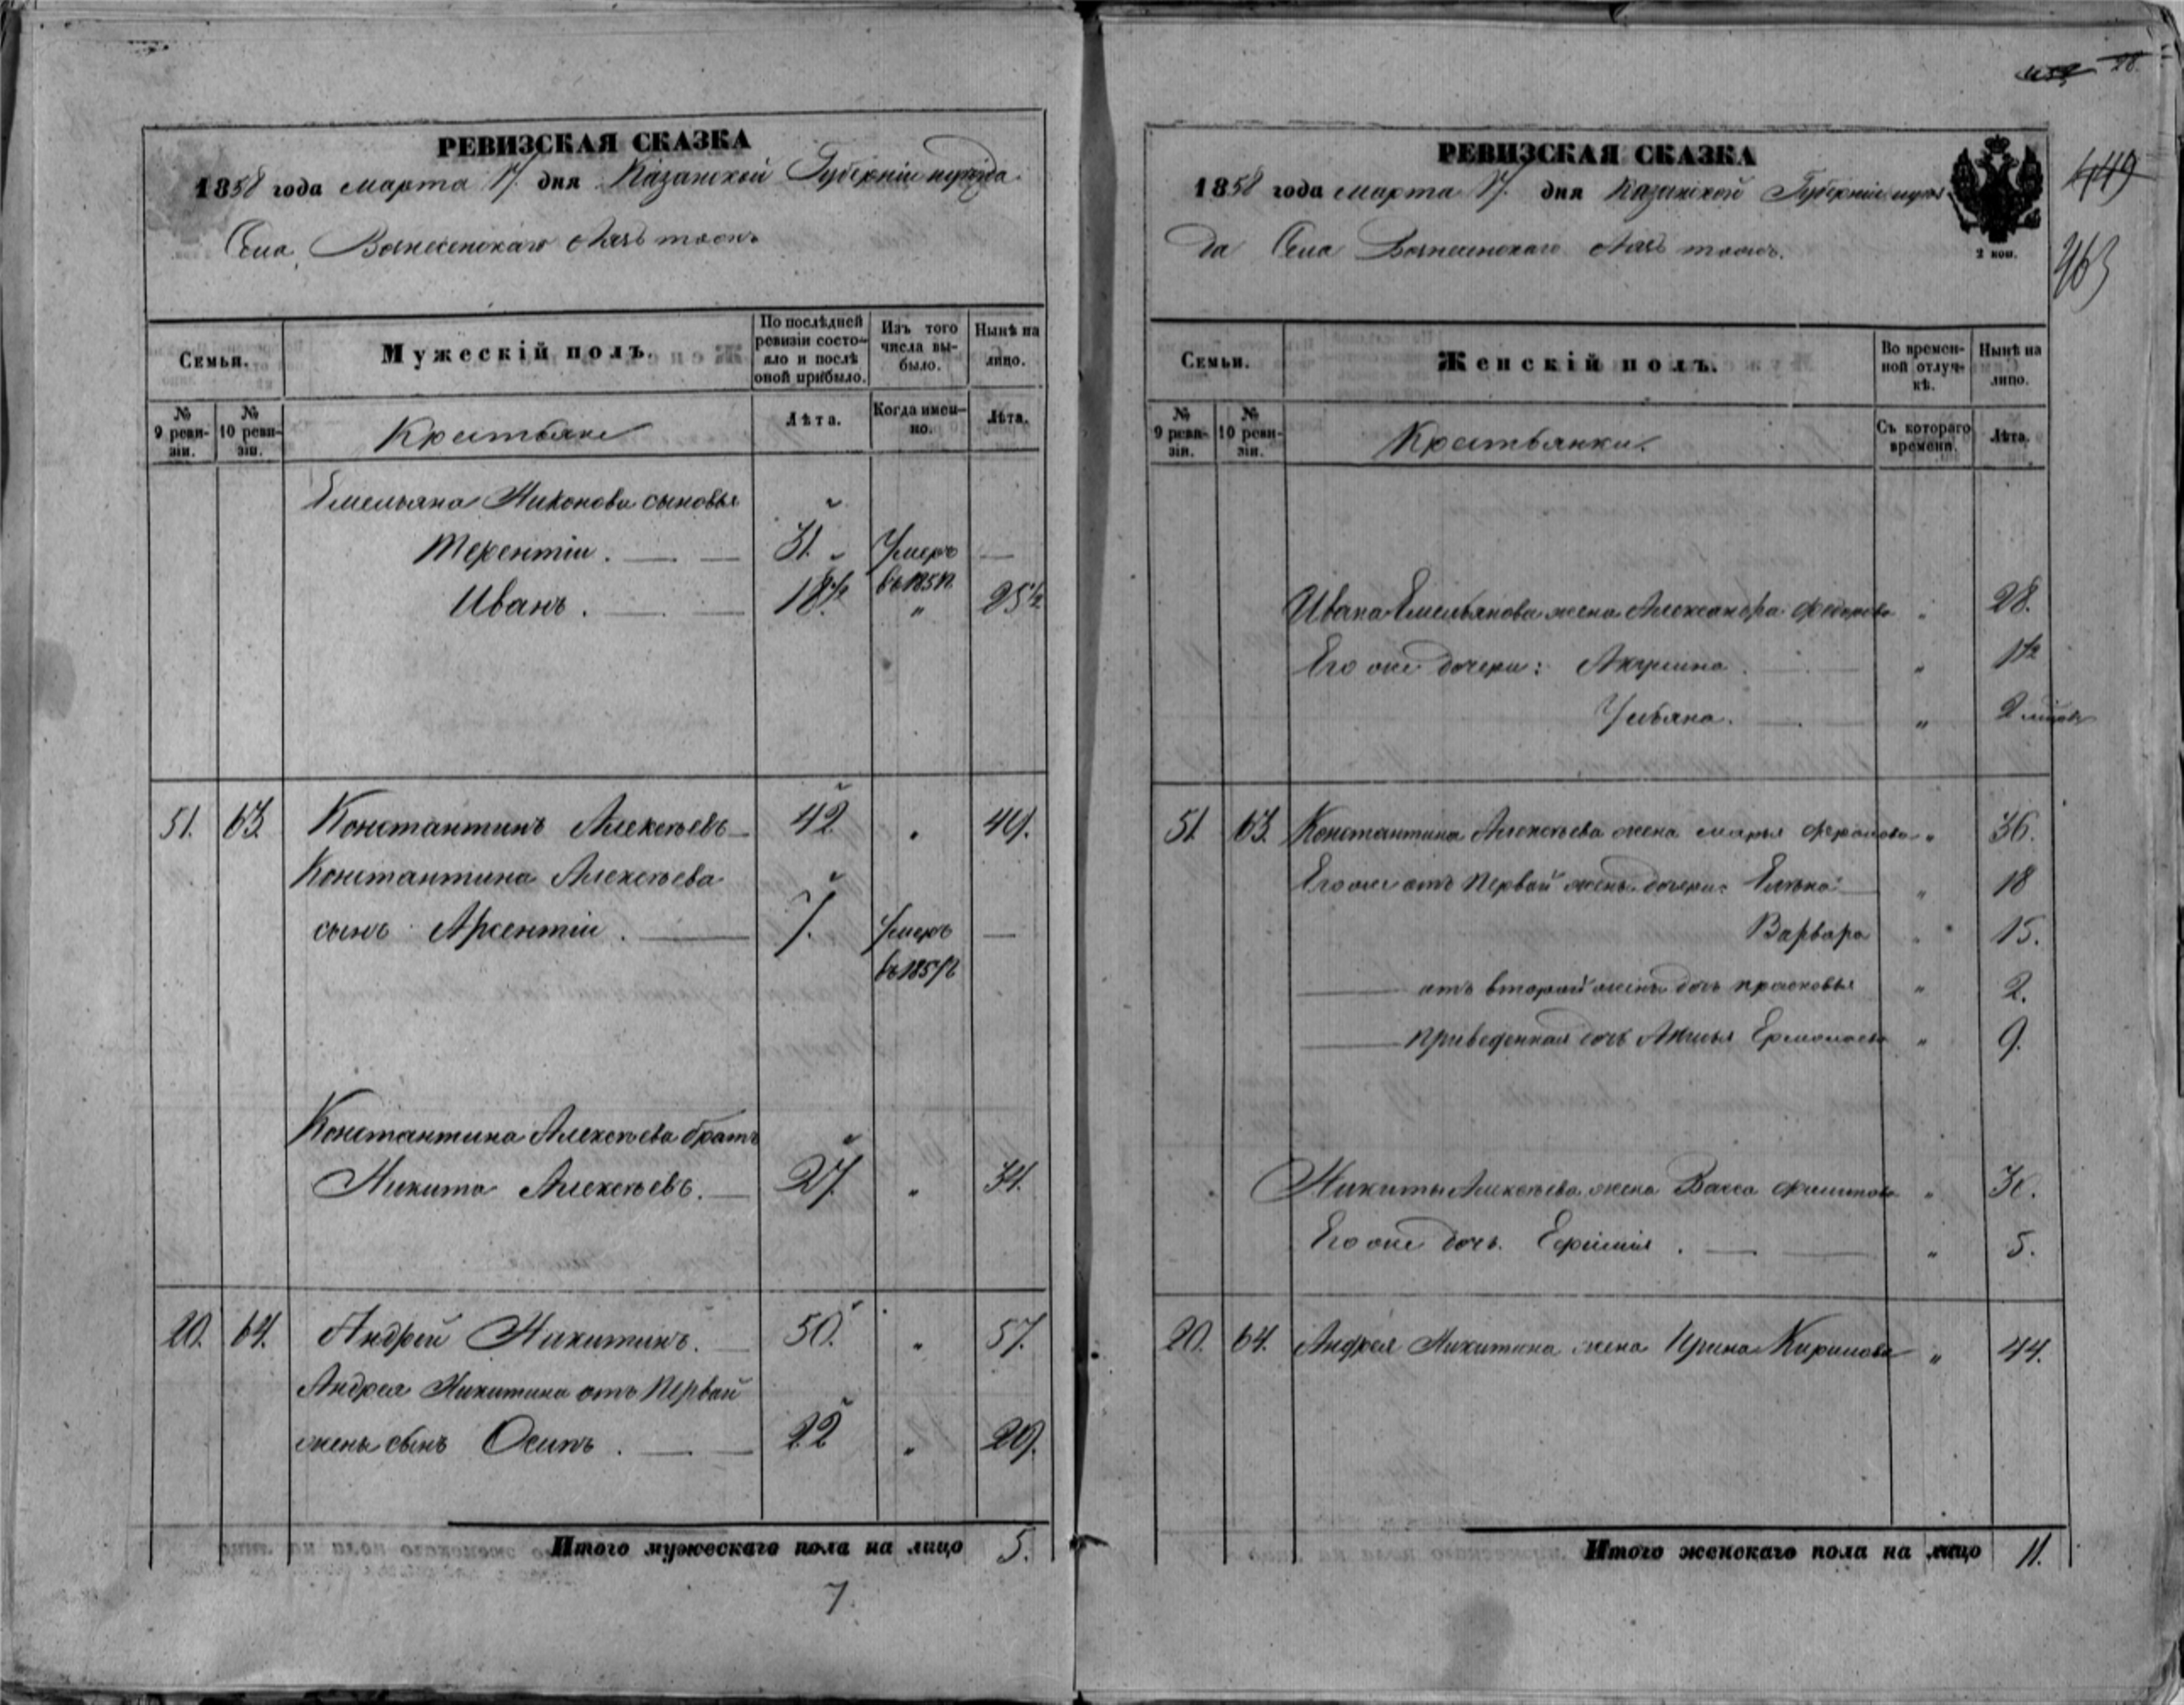 РЕВИЗСКАЯ СКАЗКА
1858 года марта 17. дня Казанской Губернии и уезда
Села Вознесенскаго
Семьи.
Мужескій полъ.
По послѣдней ревизіи состояло и послѣ оной прибыло.
Изъ того числа выбыло.
Нынѣ на лицо.
№ 9 ревизіи.
№ 10 ревизіи.
Крестьяне
Лѣта.
Когда именно.
Лѣта.
Емельяна Никонова сыновья
Терентіи. 31. Умеръ —
въ 185
Иванъ. 18½ " 25½
51. 63. Константинъ Алексѣевъ 42 " 49.
Константина Алексѣева
сынъ Арсентіи. 7. Умеръ —
въ 185
Константина Алексѣева братъ
Никита Алексѣевъ. 27. " 34.
20. 64. Андрей Никитинъ. 50. " 57.
Андрея Никитина отъ первай
жены сынъ Осипъ. 22 " 29.
Итого мужескаго пола на лицо 5.
7.
28.
449
463
РЕВИЗСКАЯ СКАЗКА
1858 года марта 17. дня Казанской Губерніи и уез
да Села Вознесенскаго
2 коп.
Семьи.
Женскій полъ.
Во временной отлучкѣ.
Нынѣ на лицо.
№ 9 ревизіи.
№ 10 ревизіи.
Крестьянки.
Съ котораго времени.
Лѣта.
Ивана Емельянова жена Александра Федорова " 28.
Его же дочери: Акулина. " 1½
Ульяна. " 2
51 63. Константина Алексѣева жена Марья " 36.
Его же отъ первай жены дочери: Елѣна " 18
Варвара " 15.
отъ второй жены дочь Прасковья " 2.
приведенная дочь Анисья Ермолаева " 9.
Никиты Алексѣева жена Васса Филипова " 30.
Его же дочь Ефимія. " 5.
20. 64. Андрея Никитина жена Ирина Кирилова " 44.
Итого женскаго пола на лицо 11.